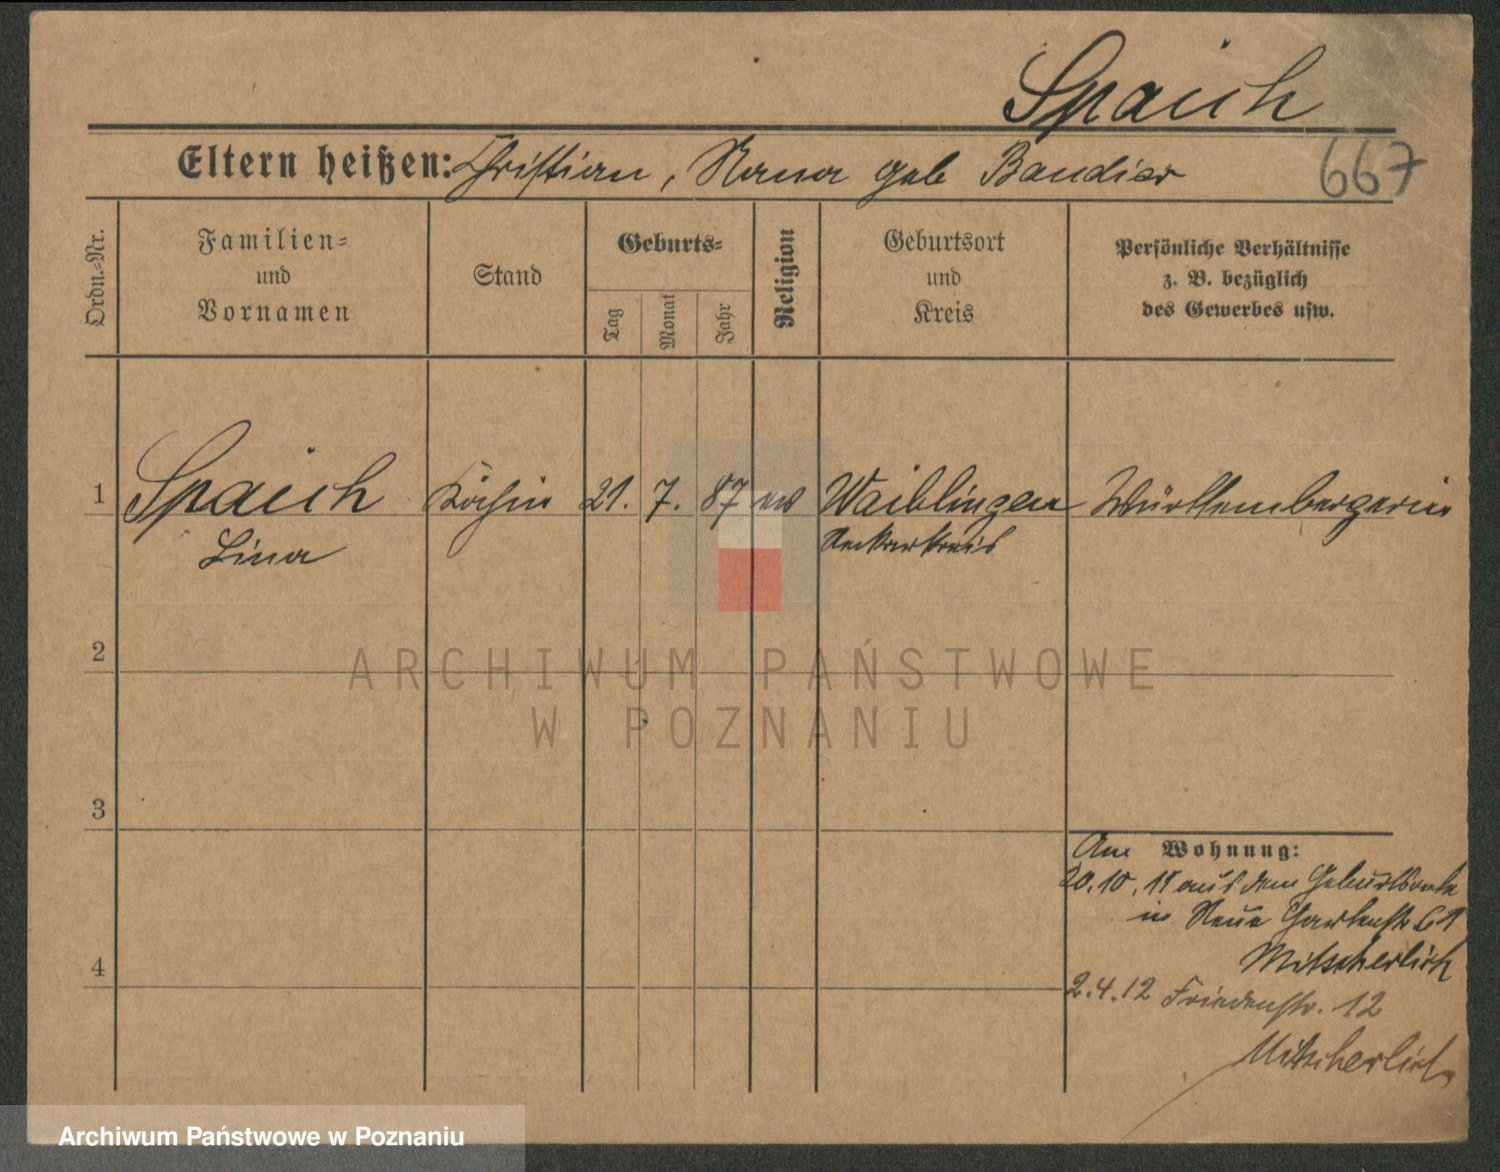 Spaich
Eltern heißen: Christian, Nana geb Bandier
667
Ordn.-Nr.
Familien-
und
Vornamen
Stand
Geburts-
Tag
Monat
Jahr
Religion
Geburtsort
und
Kreis
Persönliche Verhältnisse
z. B. bezüglich
des Gewerbes usw.
1 Spaich Köchin 21. 7. 87 ev Waiblingen Württembergerin
Lina Neckarkreis
2
3
4
Am Wohnung:
20.10.11 aus dem Geburtsorte
in Neue Gartenstr 61
Mitscherlich
2.4.12 Friedenstr. 12
Mitscherlich
ARCHIWUM PAŃSTWOWE
W POZNANIU
Archiwum Państwowe w Poznaniu